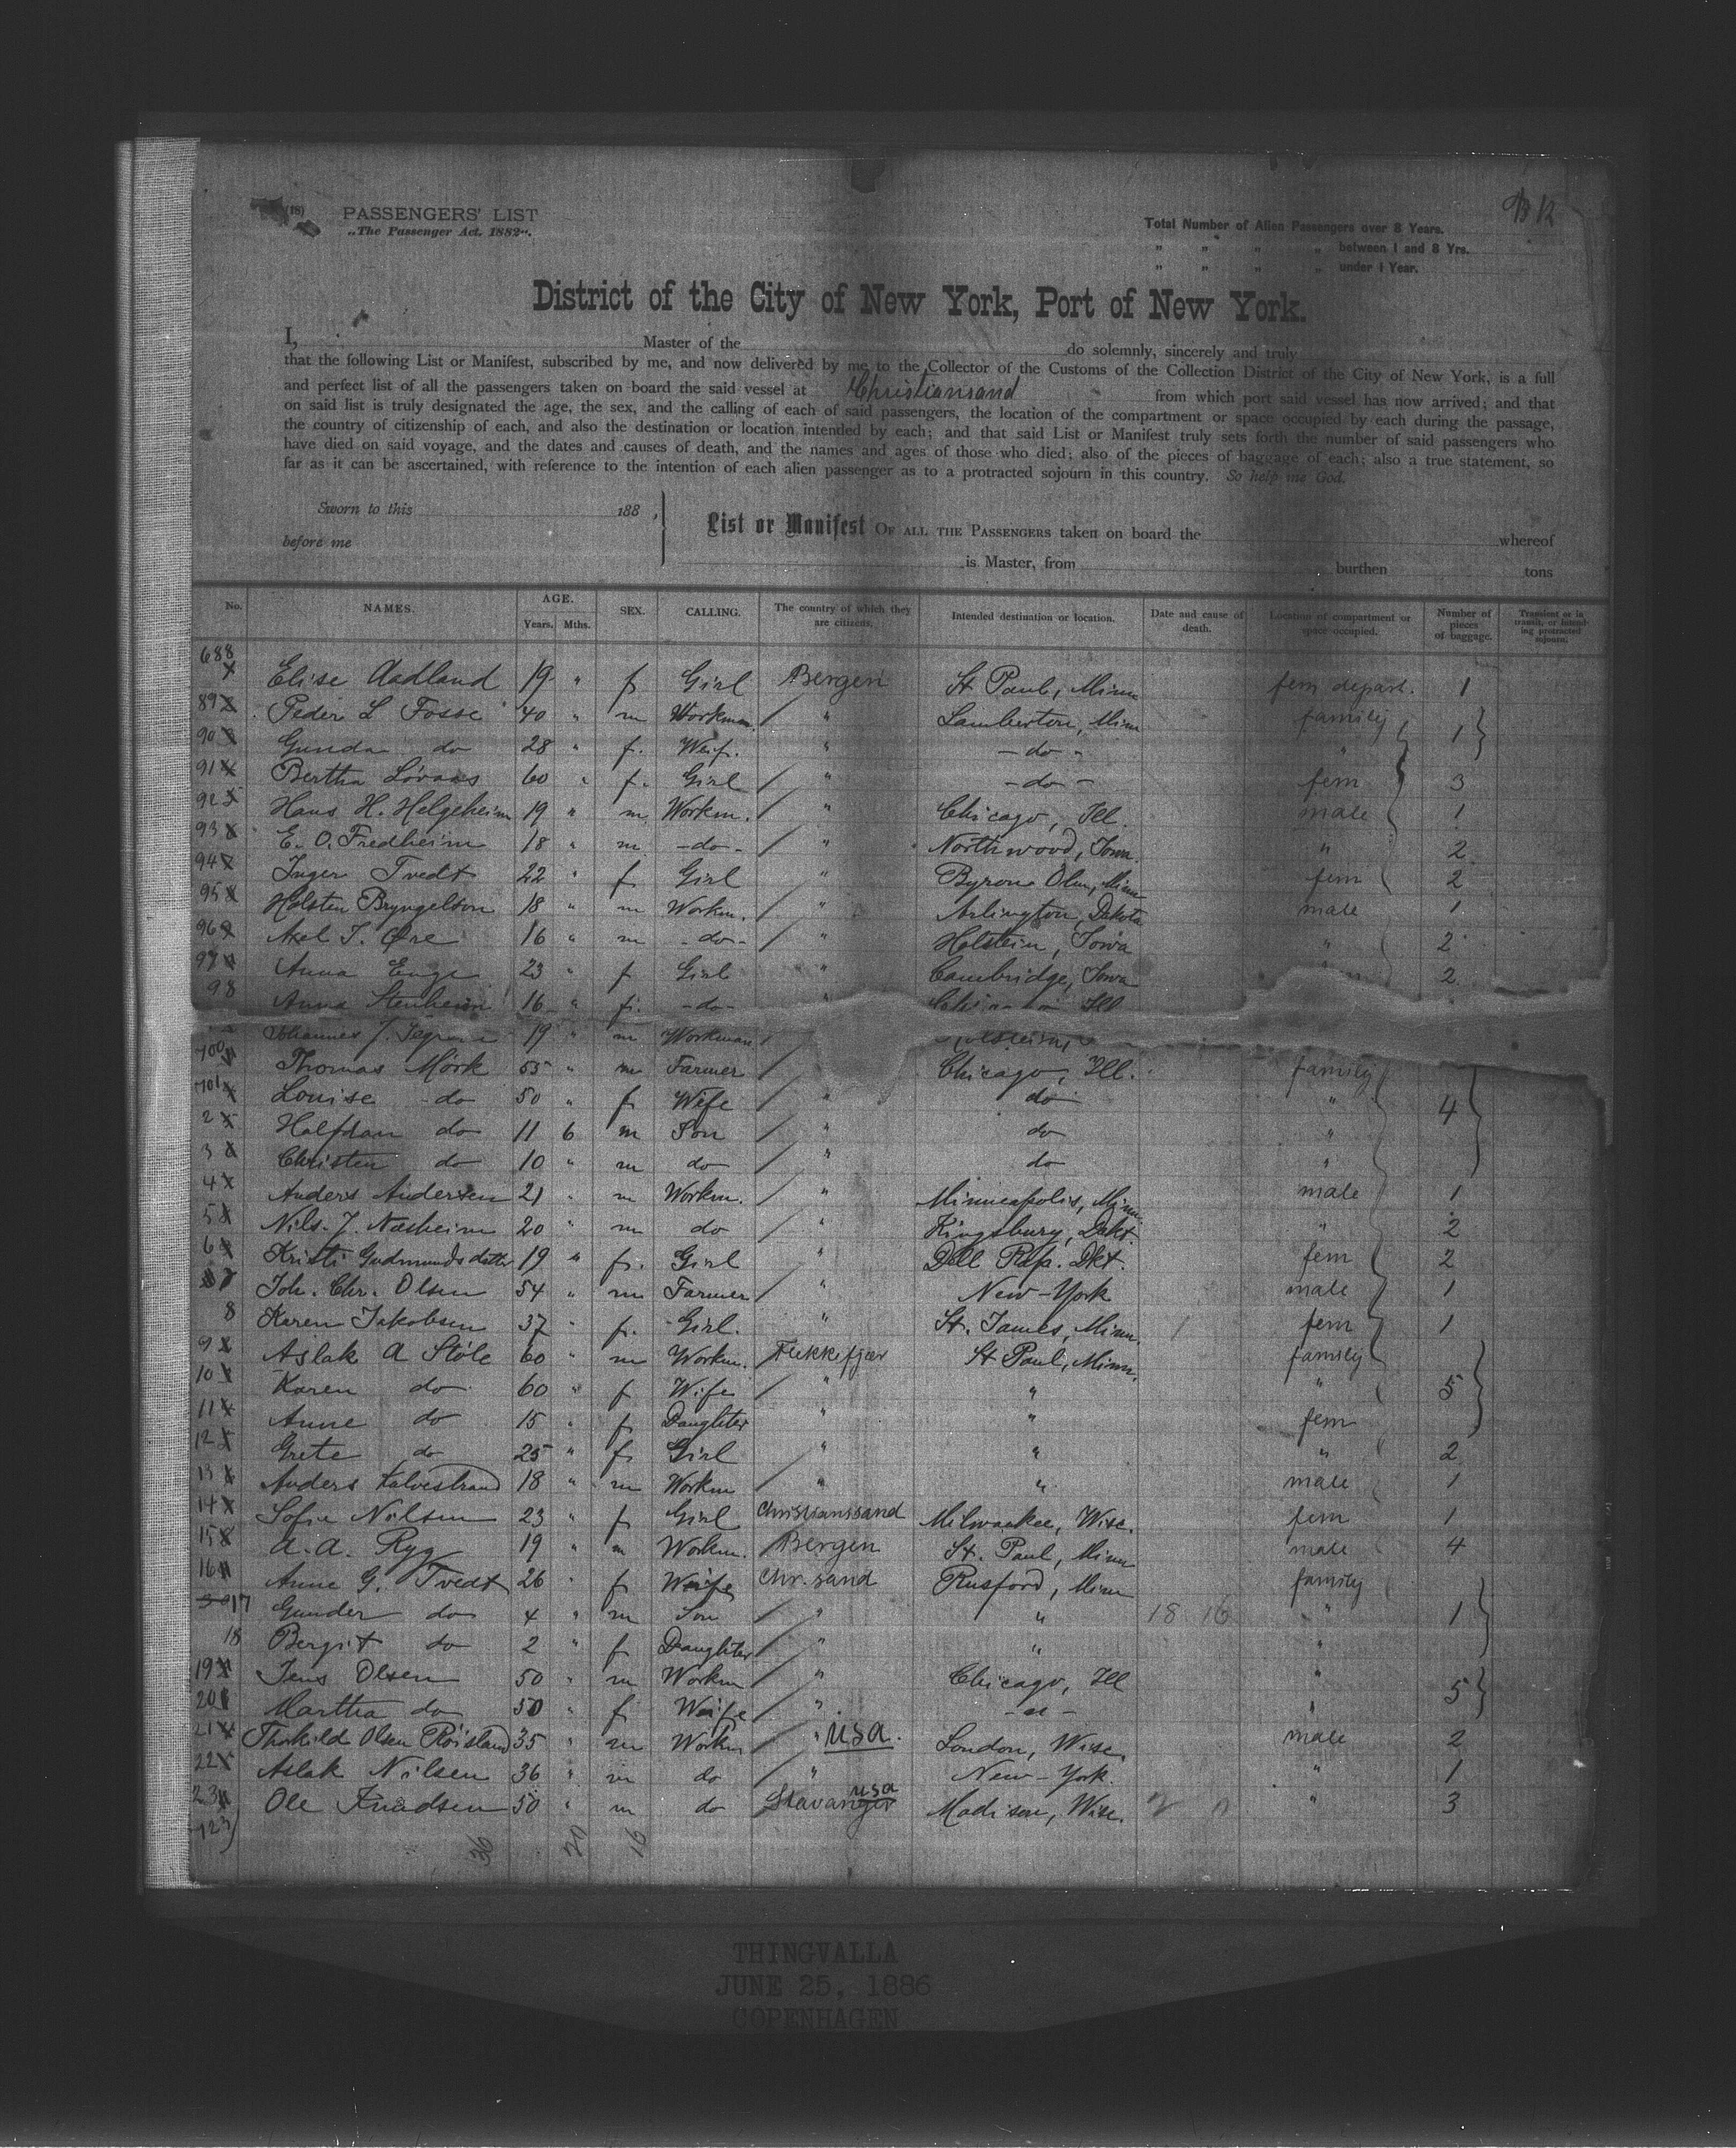 (18) PASSENGERS' LIST
„The Passenger Act. 1882".
Total Number of Alien Passengers over 8 Years.
„ „ „ „ between 1 and 8 Yrs.
„ „ „ „ under 1 Year.
District of the City of New York, Port of New York.
I, Master of the do solemnly, sincerely and truly
that the following List or Manifest, subscribed by me, and now delivered by me to the Collector of the Customs of the Collection District of the City of New York, is a full
and perfect list of all the passengers taken on board the said vessel at Christiansand from which port said vessel has now arrived; and that
on said list is truly designated the age, the sex, and the calling of each of said passengers, the location of the compartment or space occupied by each during the passage,
the country of citizenship of each, and also the destination or location intended by each; and that said List or Manifest truly sets forth the number of said passengers who
have died on said voyage, and the dates and causes of death, and the names and ages of those who died; also of the pieces of baggage of each; also a true statement, so
far as it can be ascertained, with reference to the intention of each alien passenger as to a protracted sojourn in this country. So help me God.
Sworn to this 188 ,
before me
List or Manifest OF ALL THE PASSENGERS taken on board the whereof
is Master, from burthen tons
No. NAMES. AGE. Years. Mths. SEX. CALLING. The country of which they are citizens. Intended destination or location. Date and cause of death. Location of compartment or space occupied. Number of pieces of baggage. Transient or in transit, or intending protracted sojourn.
688 Elise Aadland 19 " f Girl Bergen St Paul, Minn fem depart. 1
89 Peder L Fosse 40 " m Workman " Lamberton, Minn family 1
90 Gunda do 28 " f. Weif. " - do - "
91 Bertha Lövaas 60 " f. Girl " - do - fem 3
92 Hans H. Helgeheim 19 " m Workm. " Chicago, Ill. male 1
93 E. O. Fredheim 18 " m - do - " Northwood, Iowa " 2
94 Inger Tvedt 22 " f Girl " Byrone Olm, Minn fem 2
95 Holsten Bryngelson 18 " m Workm. " Arlington, Dakota male 1
96 Axel T. Øre 16 " m - do - " Holstein, Iowa " 2
97 Anna Enge 23 " f Girl " Cambridge, Iowa 2
98 Anna Stenheim 16 " f. - do - " Ill
Johannes J. 19 " m Workman
700 Thomas Mörk 55 " m Farmer Chicago, Ill. family
701 Louise do 50 " f Wife " do " 4
2 Halfdan do 11 6 m Son " do "
3 Christen do 10 " m do " do "
4 Anders Andersen 21 " m Workm. " Minneapolis, Minn. male 1
5 Nils J. Næsheim 20 " m do " Kingsbury, Dakt. " 2
6 Kristi Gudmundsdatter 19 " f. Girl " Dell Rap. Dkt. fem 2
7 Joh. Chr. Olsen 54 " m Farmer " New-York male 1
8 Karen Jakobsen 37 " f. Girl. " St. James, Minn. fem 1
9 Aslak A Stöle 60 " m Workm. Flekkefjær St Paul, Minn. family
10 Karen do 60 " f Wife " " " 5
11 Anne do 15 " f Daughter " " fem
12 Grete do 25 " f Girl " " " 2
13 Anders Kalvestrand 18 " m Workm " " male 1
14 Sofie Nilsen 23 " f Girl Christianssand Milwaukee, Wisc. fem 1
15 A. A. Ryg 19 " m Workm. Bergen St. Paul, Minn male 4
16 Anne G. Tvedt 26 " f Weife Chr. sand Rusford, Minn family
17 Gunder do 4 " m Son " " 18 16 " 1
18 Bergit do 2 " f Daughter " " "
19 Jens Olsen 50 " m Workm " Chicago, Ill "
20 Martha do 50 " f Weife " " 5
21 Thorkild Olsen Röisland 35 " m Workm " USA. London, Wisc. male 2
22 Aslak Nilsen 36 " m do " New-York. " 1
23 Ole Knudsen 50 " m do Stavanger USA Madison, Wisc. 2 0 " 3
723)
36 20 16
THINGVALLA
JUNE 25, 1886
COPENHAGEN